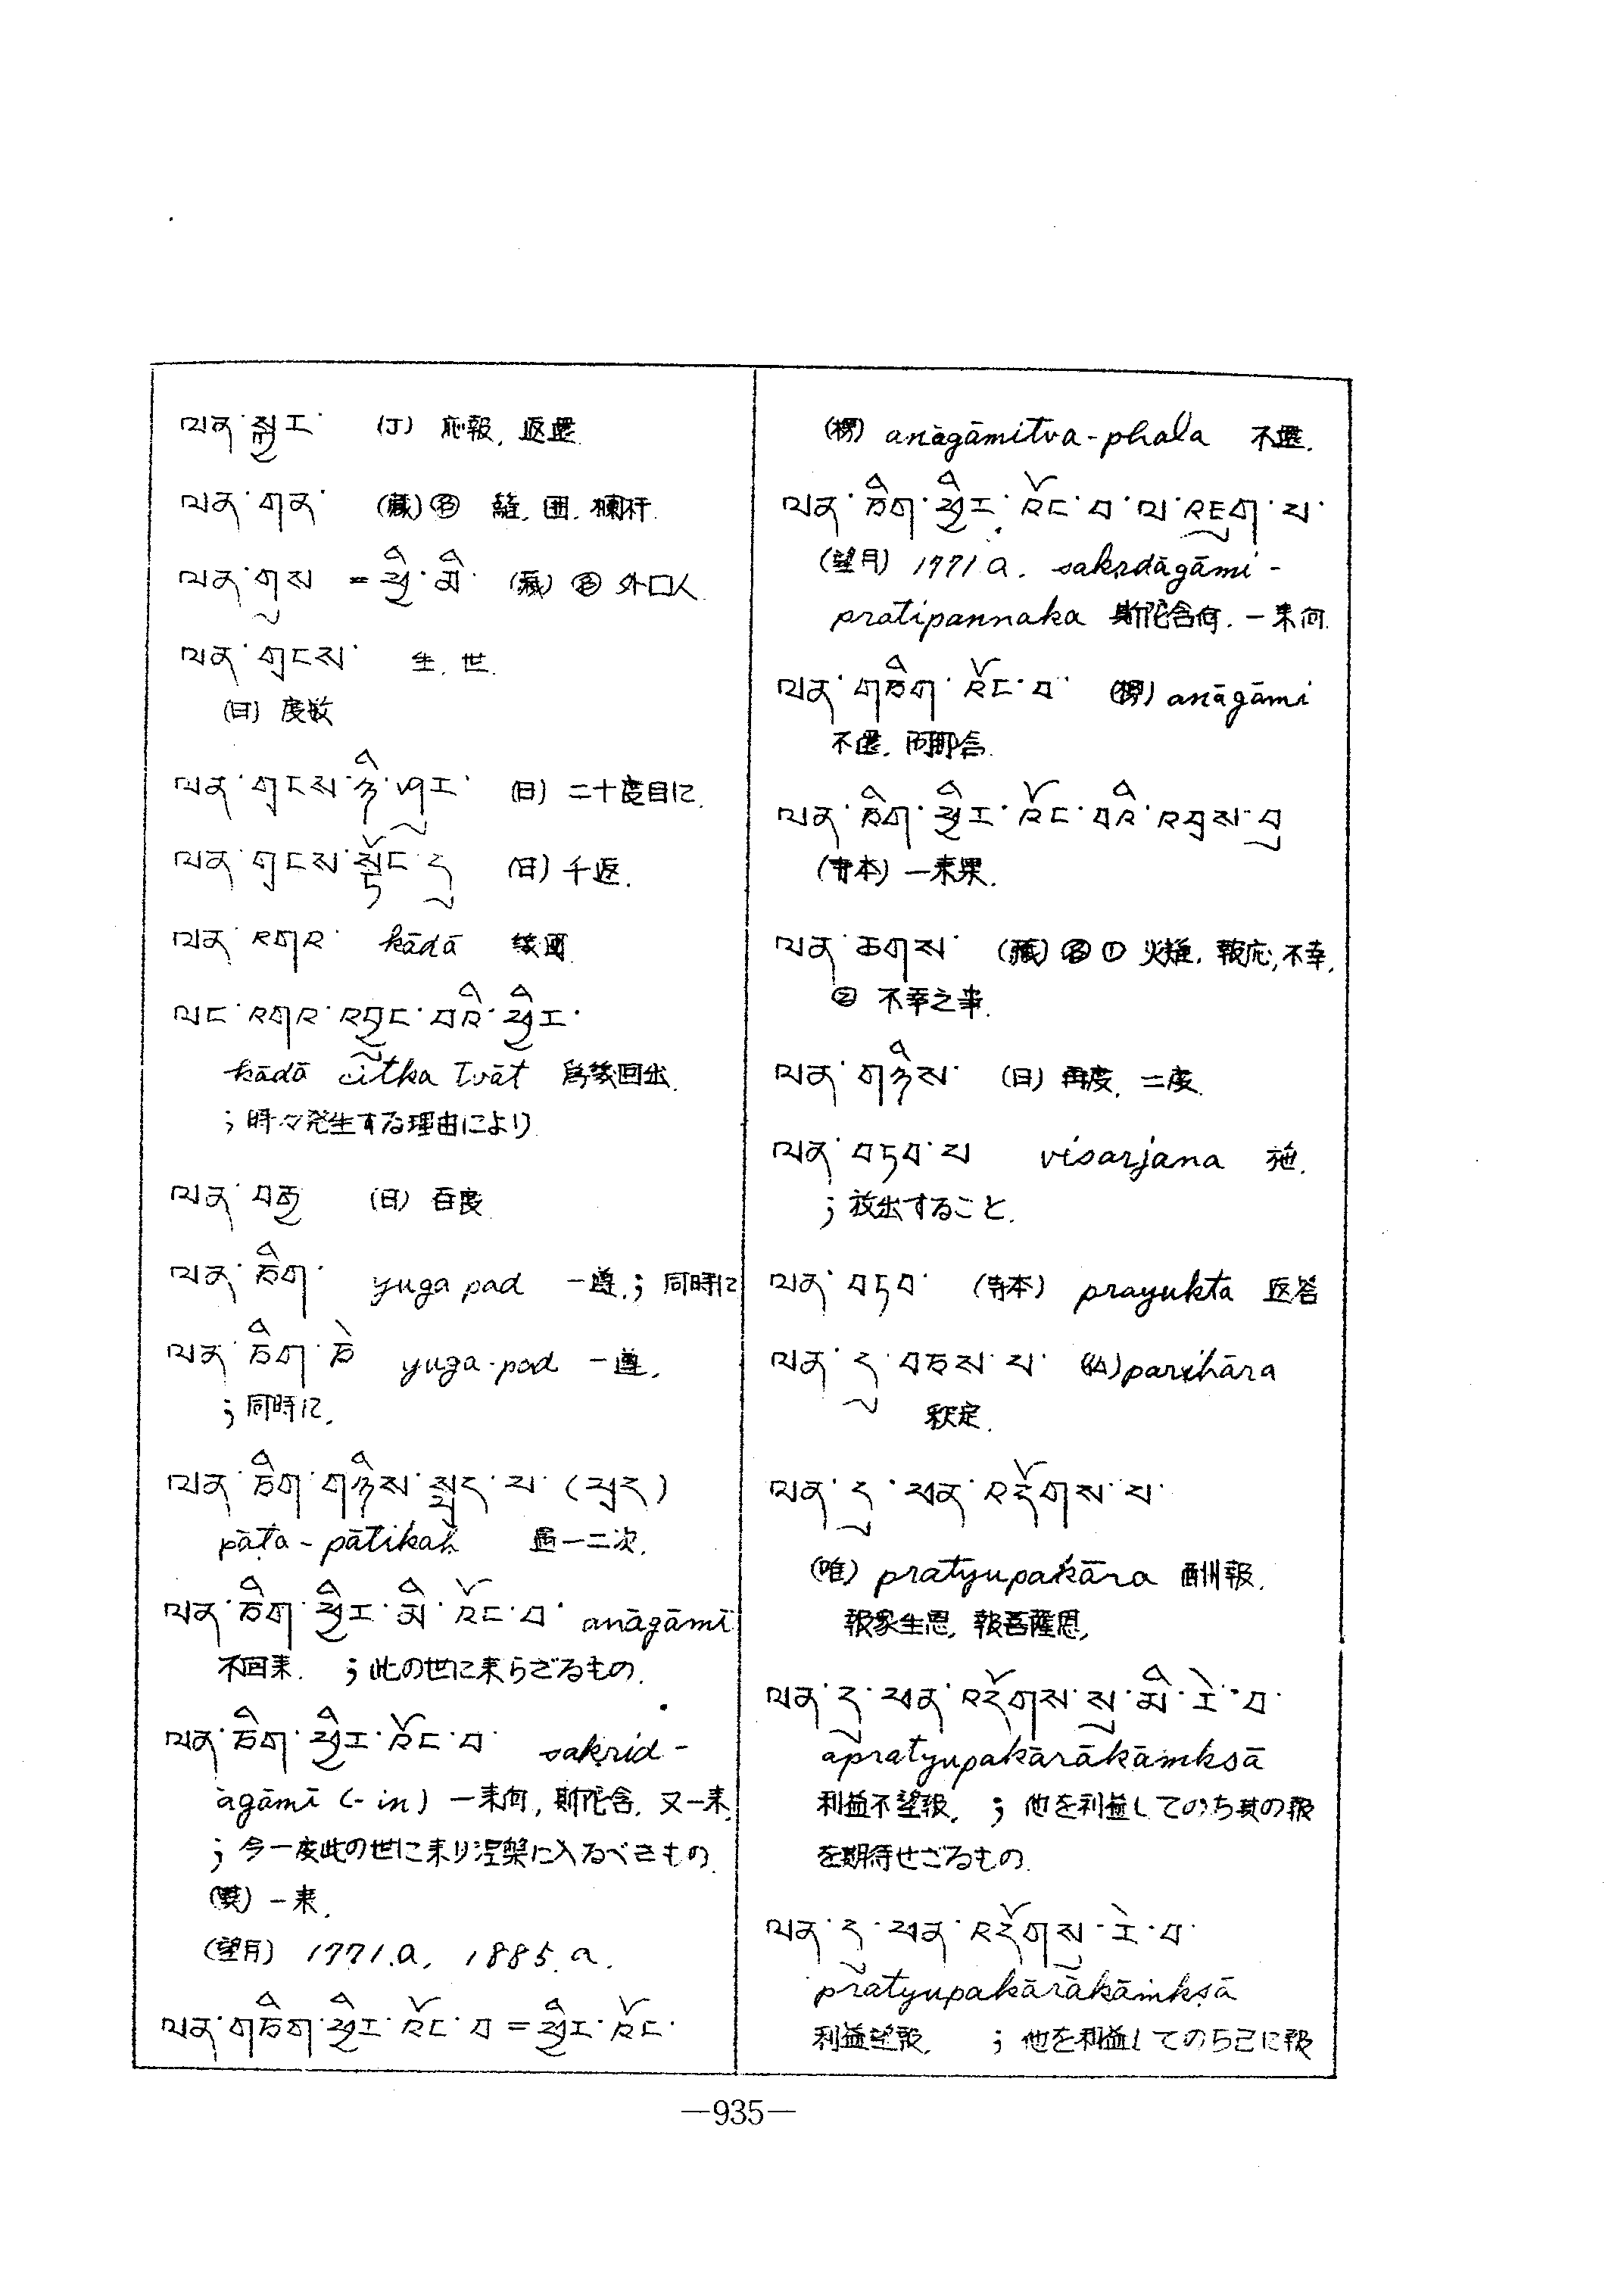 ལན་སྐྱར་ (J) 応報, 返還
ལན་གན་ (蔵) 名 籬, 囲, 欄杆.
ལན་གུས = ཕྱི་མི་ (蔵) 名 外口人.
ལན་གྲངས་ 生, 世.
(日) 度数
ལན་གྲངས་ཉི་ཤུར་ (日) 二十度目に.
ལན་གྲངས་སྟོང་དུ (日) 千返.
ལན་འགའ་ kādā 幾回.
ལང་འགའ་འབྱུང་བའི་ཕྱིར་
kādā citka tvāt 為幾回出.
; 時々発生する理由により.
ལན་བརྒྱ (日) 百度
ལན་ཅིག་ yuga pad 一遵.; 同時に
ལན་ཅིག་ཅེ yuga-pad 一遵.
; 同時に.
ལན་ཅིག་གཉིས་སྦྱད་པ་ (སྤྱད)
pāṭa-pātikaḥ 一二次.
ལན་ཅིག་ཕྱིར་མི་འོང་བ་ anāgāmī
不回来. ; 此の世に来らざるもの.
ལན་ཅིག་ཕྱིར་འོང་བ་ sakṛid-
āgāmī (-in) 一来向, 斯陀含, 又一来.
; 今一度此の世に来り涅槃に入るべきもの.
一来.
(望月) 1771.a, 1885.a.
ལན་གཅིག་ཕྱིར་འོང་བ = ཕྱིར་འོང་
(榜) anāgāmitva-phala 不還.
ལན་ཅིག་ཕྱིར་འོང་བ་ལ་འཇུག་པ་
(望月) 1771 a. sakṛdāgāmi-
pratipannaka 斯陀含向. 一来向.
ལན་གཅིག་འོང་བ་ (榜) anāgāmi
不還, 阿那含.
ལན་ཅིག་ཕྱིར་འོང་བའི་འབྲས་བུ
(寺本) 一来果.
ལན་ཆགས་ (蔵) 名 ① 火燵, 報応, 不幸,
② 不幸之事.
ལན་གཉིས་ (日) 再度, 二度.
ལན་བཏབ་པ visarjana 施.
; 放出すること.
ལན་བཏབ་ (寺本) prayukta 返答
ལན་དུ་བཅས་པ་ parihāra
釈定.
ལན་དུ་ཕན་འདོགས་པ་
(唯) pratyupakāra 酬報.
報衆生恩, 報菩薩恩,
ལན་དུ་ཕན་འདོགས་སུ་མི་རེ་བ་
apratyupakārākāṁkṣā
利益不望報. ; 他を利益してのち其の報
を期待せざるもの.
ལན་དུ་ཕན་འདོགས་སུ་རེ་བ་
pratyupakārākāṁkṣā
利益望報. ; 他を利益してのち己に報
—935—